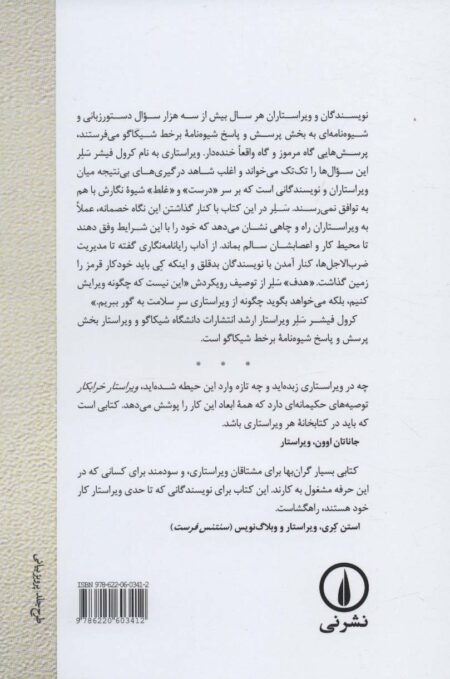 نویسندگان و ویراستاران هر سال بیش از سه هزار سؤال دستورزبانی و
شیوه‌نامه‌ای به بخش پرسش و پاسخ شیوه‌نامهٔ برخط شیکاگو می‌فرستند،
پرسش‌هایی گاه مرموز و گاه واقعاً خنده‌دار. ویراستاری به نام کرول فیشر سَلِر
این سؤال‌ها را تک‌تک می‌خواند و اغلب شاهد درگیری‌های بی‌نتیجه میان
ویراستاران و نویسندگانی است که بر سر «درست» و «غلط» شیوهٔ نگارش با هم
به توافق نمی‌رسند. سَلِر در این کتاب با کنار گذاشتن این نگاه خصمانه، عملاً
به ویراستاران راه و چاهی نشان می‌دهد که خود را با این شرایط وفق دهند
تا محیط کار و اعصابشان سالم بماند. از آداب رایانامه‌نگاری گفته تا مدیریت
ضرب‌الاجل‌ها، کنار آمدن با نویسندگان بدقلق و اینکه کِی باید خودکار قرمز را
زمین گذاشت. «هدف» سَلِر از توصیف رویکردش «این نیست که چگونه ویرایش
کنیم، بلکه می‌خواهد بگوید چگونه از ویراستاری سرِ سلامت به گور ببریم.»
کرول فیشر سَلِر ویراستار ارشد انتشارات دانشگاه شیکاگو و ویراستار بخش
پرسش و پاسخ شیوه‌نامهٔ برخط شیکاگو است.
چه در ویراستاری زبده‌اید و چه تازه وارد این حیطه شده‌اید، ویراستار خرابکار
توصیه‌های حکیمانه‌ای دارد که همهٔ ابعاد این کار را پوشش می‌دهد. کتابی است
که باید در کتابخانهٔ هر ویراستاری باشد.
جاناتان اوون، ویراستار
کتابی بسیار گران‌بها برای مشتاقان ویراستاری، و سودمند برای کسانی که در
این حرفه مشغول به کارند. این کتاب برای نویسندگانی که تا حدی ویراستار کار
خود هستند، راهگشاست.
استن کِری، ویراستار و وبلاگ‌نویس (سنتنس فرست)
ISBN 978-622-06-0341-2
9 786220 603412
نشرنی
طرح جلد: پرویز بیانی